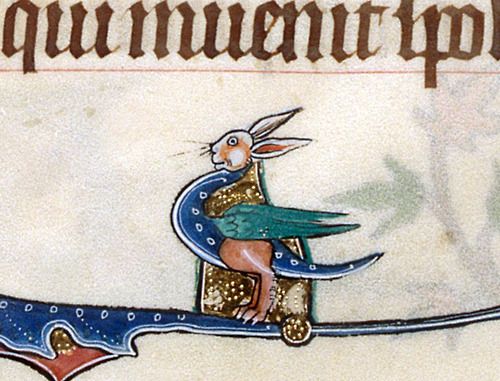 qui inuenit spol